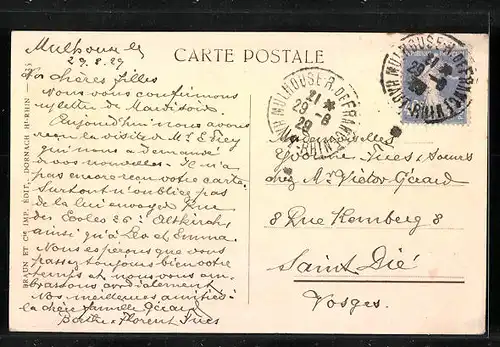 CARTE POSTALE
Mulhouse le
29.8.29
Nos chères filles
Nous vous confirmons
lettre de Mardi soir
Aujourd'hui nous avons
reçu la visite de Mr E.
qui nous a demandé
vos nouvelles. Il n'a
pas encore reçu votre carte
Surtout n'oubliez pas
de la lui envoyer Rue
des Ecoles 26: Altkirch,
ainsi qu'à Léa et Emma.
Nous espérons que vous
passez toujours bien votre
temps et nous vous em-
brassons cordialement
Nos meilleures amitiés à
la chère famille Gérard
Berthe & Florent Ives
BRAUN ET Cie IMP. ÉDIT., DORNACH, Ht-RHIN
MULHOUSE-R. DE FRANCE
21
29-8
29
Ht-RHIN
MULHOUSE-R. DE FRANCE
Ht-RHIN
Mesdemoiselles
Yvonne Ives & Soeurs
chez Mr Victor Gérard
8 Rue Kemberg 8
Saint Dié
Vosges.